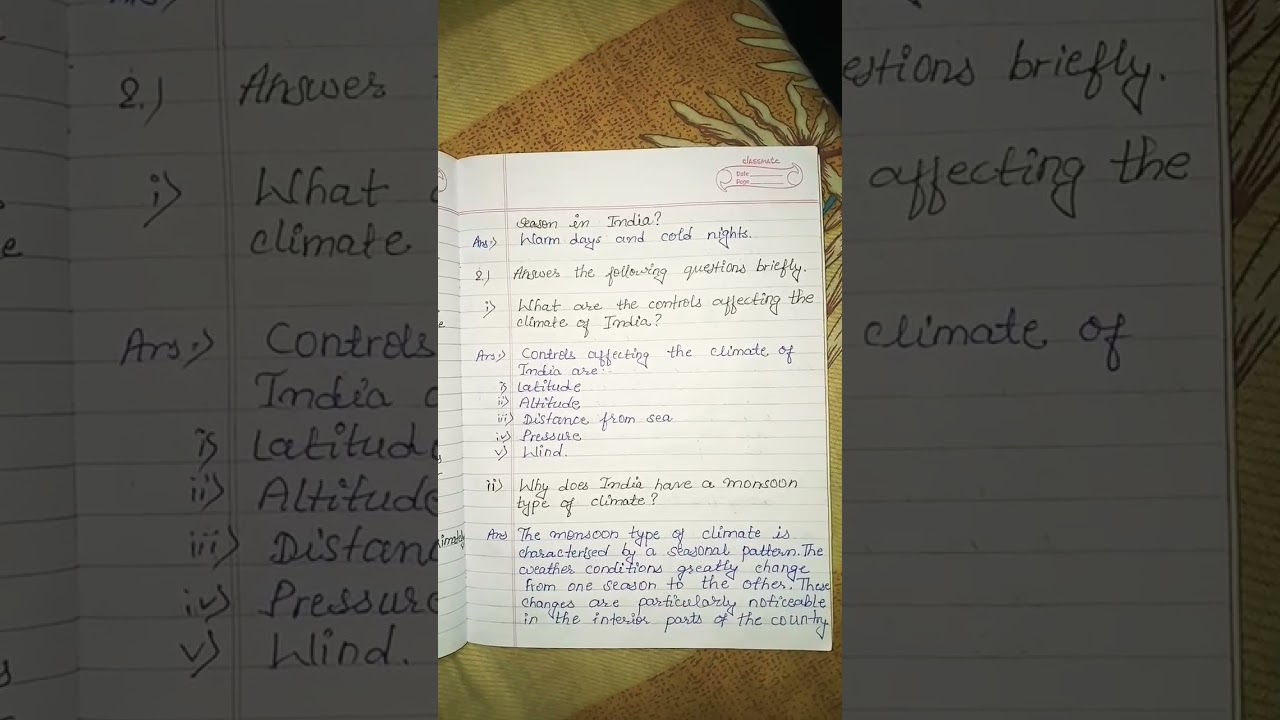 classmate
Date
Page
season in India?
Ans:) Warm days and cold nights.
2.) Answer the following questions briefly.
i) What are the controls affecting the
climate of India?
Ans:) Controls affecting the climate of
India are:-
i) Latitude
ii) Altitude
iii) Distance from sea
iv) Pressure
v) Wind.
ii) Why does India have a monsoon
type of climate?
Ans The monsoon type of climate is
characterised by a seasonal pattern. The
weather conditions greatly change
from one season to the other. These
changes are particularly noticeable
in the interior parts of the country